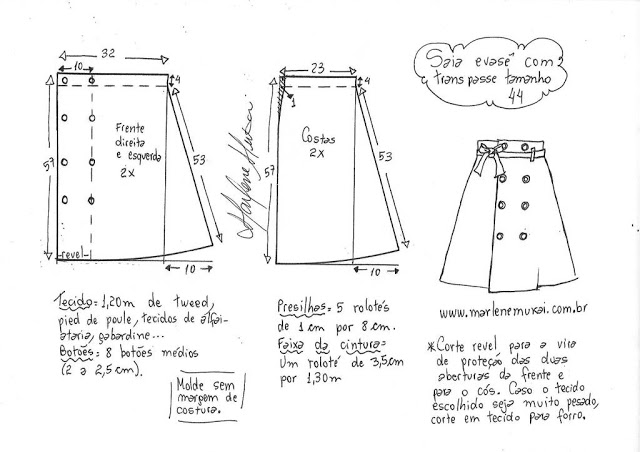 Saia evasê com
transpasse tamanho
44
32
10
4
57
Frente
direita
e esquerda
2x
53
revel
10
23
4
1
Costas
2x
57
53
10
Marlene Mukai
www.marlenemukai.com.br
Tecido= 1,20m de tweed,
pied de poule, tecidos de alfai-
ataria, gabardine...
Botões= 8 botões médios
(2 a 2,5cm).
Molde sem
margem de
costura.
Presilhas= 5 rolotês
de 1cm por 8cm.
Faixa da cintura=
Um roloté de 3,5cm
por 1,30m
*Corte revel para a vira
de proteção das duas
aberturas da frente e
para o cós. Caso o tecido
escolhido seja muito pesado,
corte em tecido para forro.